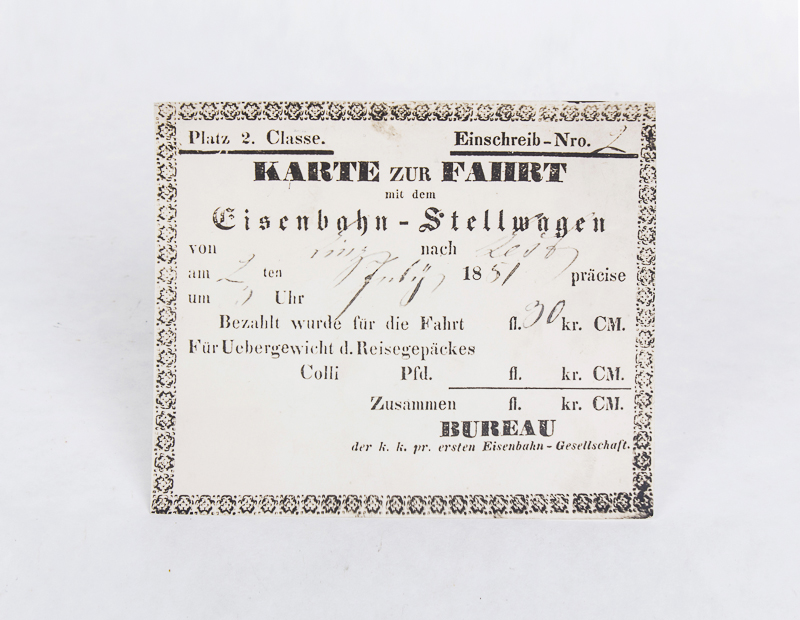 Platz 2. Classe. Einschreib-Nro. 2
KARTE ZUR FAHRT
mit dem
Eisenbahn-Stellwagen
von Linz nach
am 2 ten July 1851 präcise
um 3 Uhr
Bezahlt wurde für die Fahrt fl. 30 kr. CM.
Für Uebergewicht d. Reisegepäckes
Colli Pfd. fl. kr. CM.
Zusammen fl. kr. CM.
BUREAU
der k. k. pr. ersten Eisenbahn-Gesellschaft.